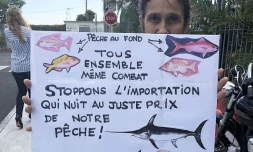 PÊCHE AU FOND
TOUS
ENSEMBLE
MÊME COMBAT
STOPPONS L'IMPORTATION
QUI NUIT AU JUSTE PRIX
DE NOTRE
PÊCHE!